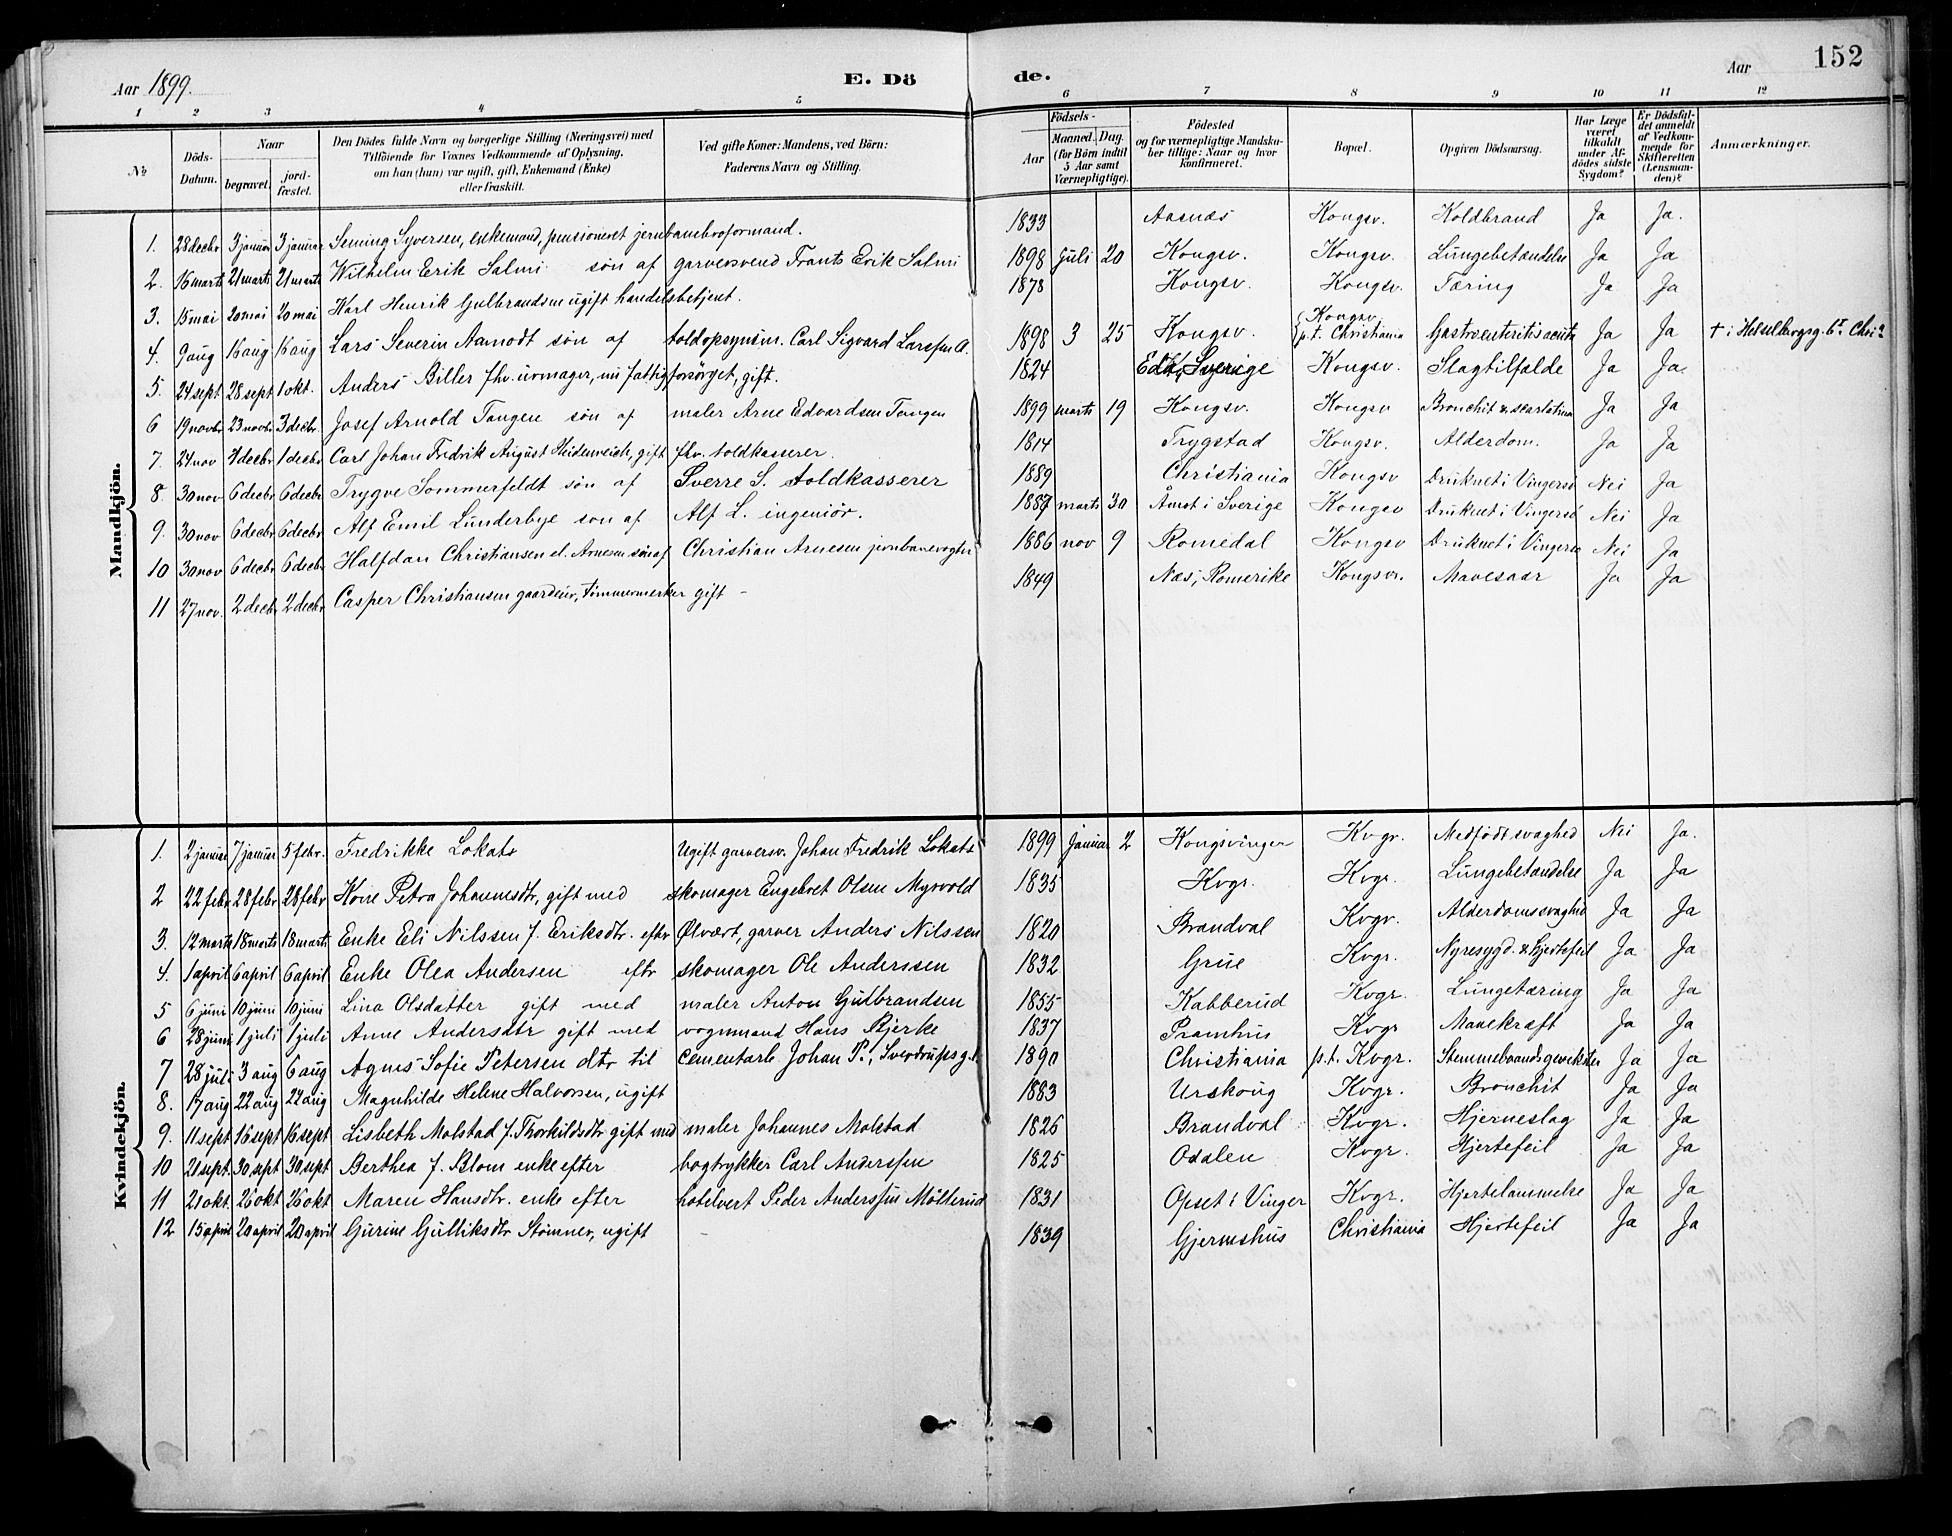 Aar 1899.
E. Dö
de.
Aar
152
1 2 3 4 5 6 7 8 9 10 11 12
№
Döds-Datum.
Naar
begravet.
jordfæstet.
Den Dödes fulde Navn og borgerlige Stilling (Næringsvei) med Tilföiende for Voxnes Vedkommende af Oplysning, om han (hun) var ugift, gift, Enkemand (Enke) eller fraskilt.
Ved gifte Koner: Mandens, ved Börn: Faderens Navn og Stilling.
Födsels-
Aar
Maaned. Dag.
(for Börn indtil 5 Aar samt Værnepligtige).
Födested og for værnepligtige Mandskaber tillige: Naar og hvor konfirmeret.
Bopæl.
Opgiven Dödsaarsag.
Har Læge været tilkaldt under Afdödes sidste Sygdom?
Er Dödsfaldet anmeldt af Vedkommende for Skifteretten (Lensmanden)?
Anmærkninger.
Mandkjön.
1. 28 decbr 3 januar 3 januar Seming Syversen, enkemand, pensioneret jernbanebroformand. 1833 Aasnæs Kongsv. Koldbrand Ja Ja.
2. 16 marts 21 marts 21 marts Wilhelm Erik Salmi søn af garversvend Frants Erik Salmi 1898 Juli 20 Kongsv. Kongsv. Lungebetændelse Ja Ja
3. 15 mai 20 mai 20 mai Karl Henrik Gulbrandsen ugift handelsbetjent. 1878 Kongsv. Kongsv. Tæring Ja Ja
4. 9 aug 16 aug 16 aug Lars Severin Aamodt søn af toldopsynsm. Carl Sigvard Larssen A. 1898 3 25 Kongsv. Kongsv. p.t. Christiania Gastroenteritis acuta Ja Ja + i Helselbergsg. 6 Chr.
5. 24 sept 28 sept 1 okt. Anders Biller fhv. urmager, nu fattigforsörget, gift. 1824 Eda, Sverige Kongsv. Slagtilfælde Ja Ja
6 19 novbr 23 novbr 3 decbr. Josef Arnold Tangen søn af maler Arne Edvardsen Tangen 1899 marts 19 Kongsv. Kongsv Bronchit & scarlatina Ja Ja
7. 24 nov 1 decbr 1 decbr Carl Johan Fredrik August Heidenreich, gift fhv. toldkasserer. 1814 Trygstad Kongsv. Alderdom. Ja Ja
8. 30 nov 6 decbr 6 decbr Trygve Sommerfeldt søn af Sverre S. toldkasserer 1889 Christiania Kongsv Druknet i Vingersö Nei Ja
9. 30 nov 6 decbr 6 decbr Alf Emil Lunderbye søn af Alf L. ingeniör. 1887 marts 30 Åmot i Sverige Kongsv Druknet i Vingersö Nei Ja
10 30 nov 6 decbr 6 decbr Halfdan Christiansen el. Arnesen søn af Christian Arnesen jernbanevogter 1886 nov 9 Romedal Kongsv Druknet i Vingersö Nei Ja
11 27 nov. 2 decbr 2 decbr Casper Christiansen gaardeier, tömmermerker gift - 1849 Næs, Romerike Kongsv. Mavesaar Ja Ja
Kvindekjön.
1. 2 januar 7 januar 5 febr. Fredrikke Lokats Ugift garversv. Johan Fredrik Lokats 1899 Januar 2 Kongsvinger Kvgr. Medfödt svaghed Nei Ja.
2 22 febr 28 febr 28 febr Kone Petra Johannesdtr, gift med skomager Engebret Olsen Myrvold 1835 Kvgr. Kvgr. Lungebetændelse Ja Ja
3. 12 marts 18 marts 18 marts Enke Eli Nilssen f. Eriksdtr. eftr Ølvært, garver Anders Nilssen 1820 Brandval Kvgr. Alderdomssvaghed Ja Ja
4. 1 april 6 april 6 april Enke Olea Andersen eftr skomager Ole Anderssen 1832 Grue Kvgr. Nyresygd. & Hjertefeil Ja Ja
5 6 juni 10 juni 10 juni Lina Olsdatter gift med maler Anton Gulbrandsen 1855 Kabberud Kvgr. Lungetæring Ja Ja
6 28 juni 1 juli 1 juli Anne Andersdtr gift med vognmand Hans Bjerke 1837 Pramhus Kvgr Mavekræft Ja Ja
7 28 juli 3 aug 6 aug Agnes Sofie Petersen dtr til cementarb. Johan P., Sverdrupsg. 1890 Christiania p.t. Kvgr. Stemmebaandsgevekster Ja Ja
8. 17 aug 22 aug 22 aug Magnhilde Helene Halvorsen, ugift 1883 Urskoug Kvgr. Bronchit Ja Ja
9. 11 sept 16 sept 16 sept Lisbeth Molstad f. Thorkildsdtr gift med maler Johannes Molstad 1826 Brandval Kvgr. Hjerneslag Ja Ja
10 21 sept. 30 sept 30 sept Berthea f. Blom enke efter bogtrykker Carl Anderssen 1825 Odalen Kvgr. Hjertefeil Ja Ja
11 21 okt. 26 okt 26 okt Maren Hansdtr. enke efter hotelvert Peder Anderssen Mölterud 1831 Opset i Vinger Kvgr. Hjertelammelse Ja Ja
12 15 april 20 april 20 april Gurine Gulliksdtr Stömner, ugift - 1839 Gjerneshus Christiania Hjertefeil Ja Ja